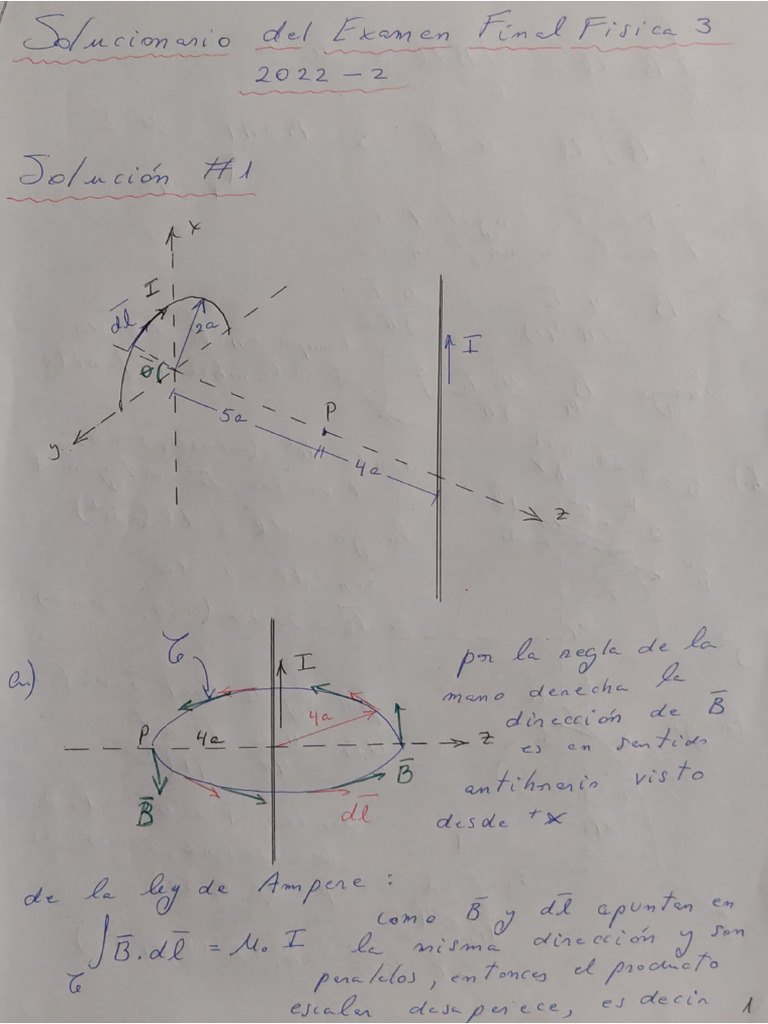 Solucionario del Examen Final Fisica 3
2022 - 2
Solución #1
x
I
dl
2a
θ
I
P
5a
y
4a
z
a)
C
I
4a
P
4a
z
B
B
dl
por la regla de la
mano derecha la
dirección de B
es en sentido
antihorario visto
desde +x
de la ley de Ampere:
∫ B̅.dl̅ = μ₀ I
C
como B̅ y dl̅ apuntan en
la misma dirección y son
paralelos, entonces el producto
escalar desaparece, es decir
1